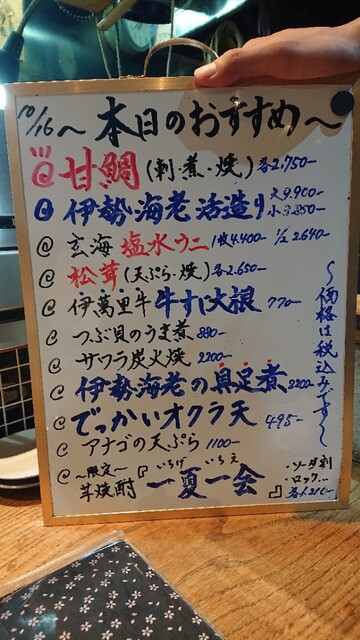 10/16〜 本日のおすすめ〜
甘鯛(刺・煮・焼)各2,750-
伊勢海老活造り 大9,900- 小3,850-
玄海塩水ウニ 1枚4,400- 1/2 2,640-
松茸(天ぷら・焼)各2,650-
伊萬里牛牛すじ大根 770-
つぶ貝のうま煮 880-
サワラ炭火焼 2200-
伊勢海老の具足煮 2200-
でっかいオクラ天 495-
アナゴの天ぷら 1100-
〜限定〜 芋焼酎『一夏一会』 いちげいちえ
・ソーダ割 ・ロック… 各1,210-
〜価格は税込みです〜